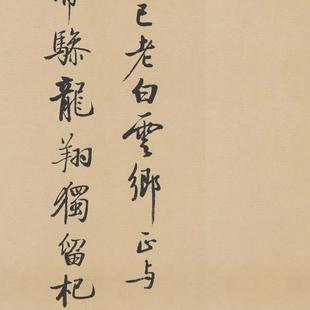 已老白雲鄉正与
驂龍翔獨留杞